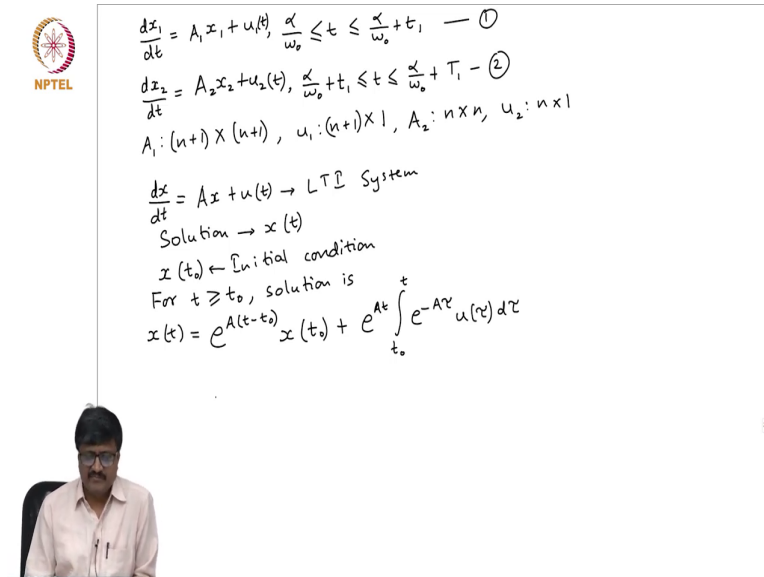 dx₁/dt = A₁x₁ + u₁(t), α/ω₀ ≤ t ≤ α/ω₀ + t₁ — ①
NPTEL
dx₂/dt = A₂x₂ + u₂(t), α/ω₀ + t₁ ≤ t ≤ α/ω₀ + T₁ - ②
A₁ : (n+1) × (n+1), u₁ : (n+1) × 1, A₂ : n × n, u₂ : n × 1
dx/dt = Ax + u(t) → LTI System
Solution → x(t)
x(t₀) ← Initial condition
For t ≥ t₀, solution is
x(t) = e^{A(t-t₀)} x(t₀) + e^{At} ∫_{t₀}^{t} e^{-Aτ} u(τ) dτ